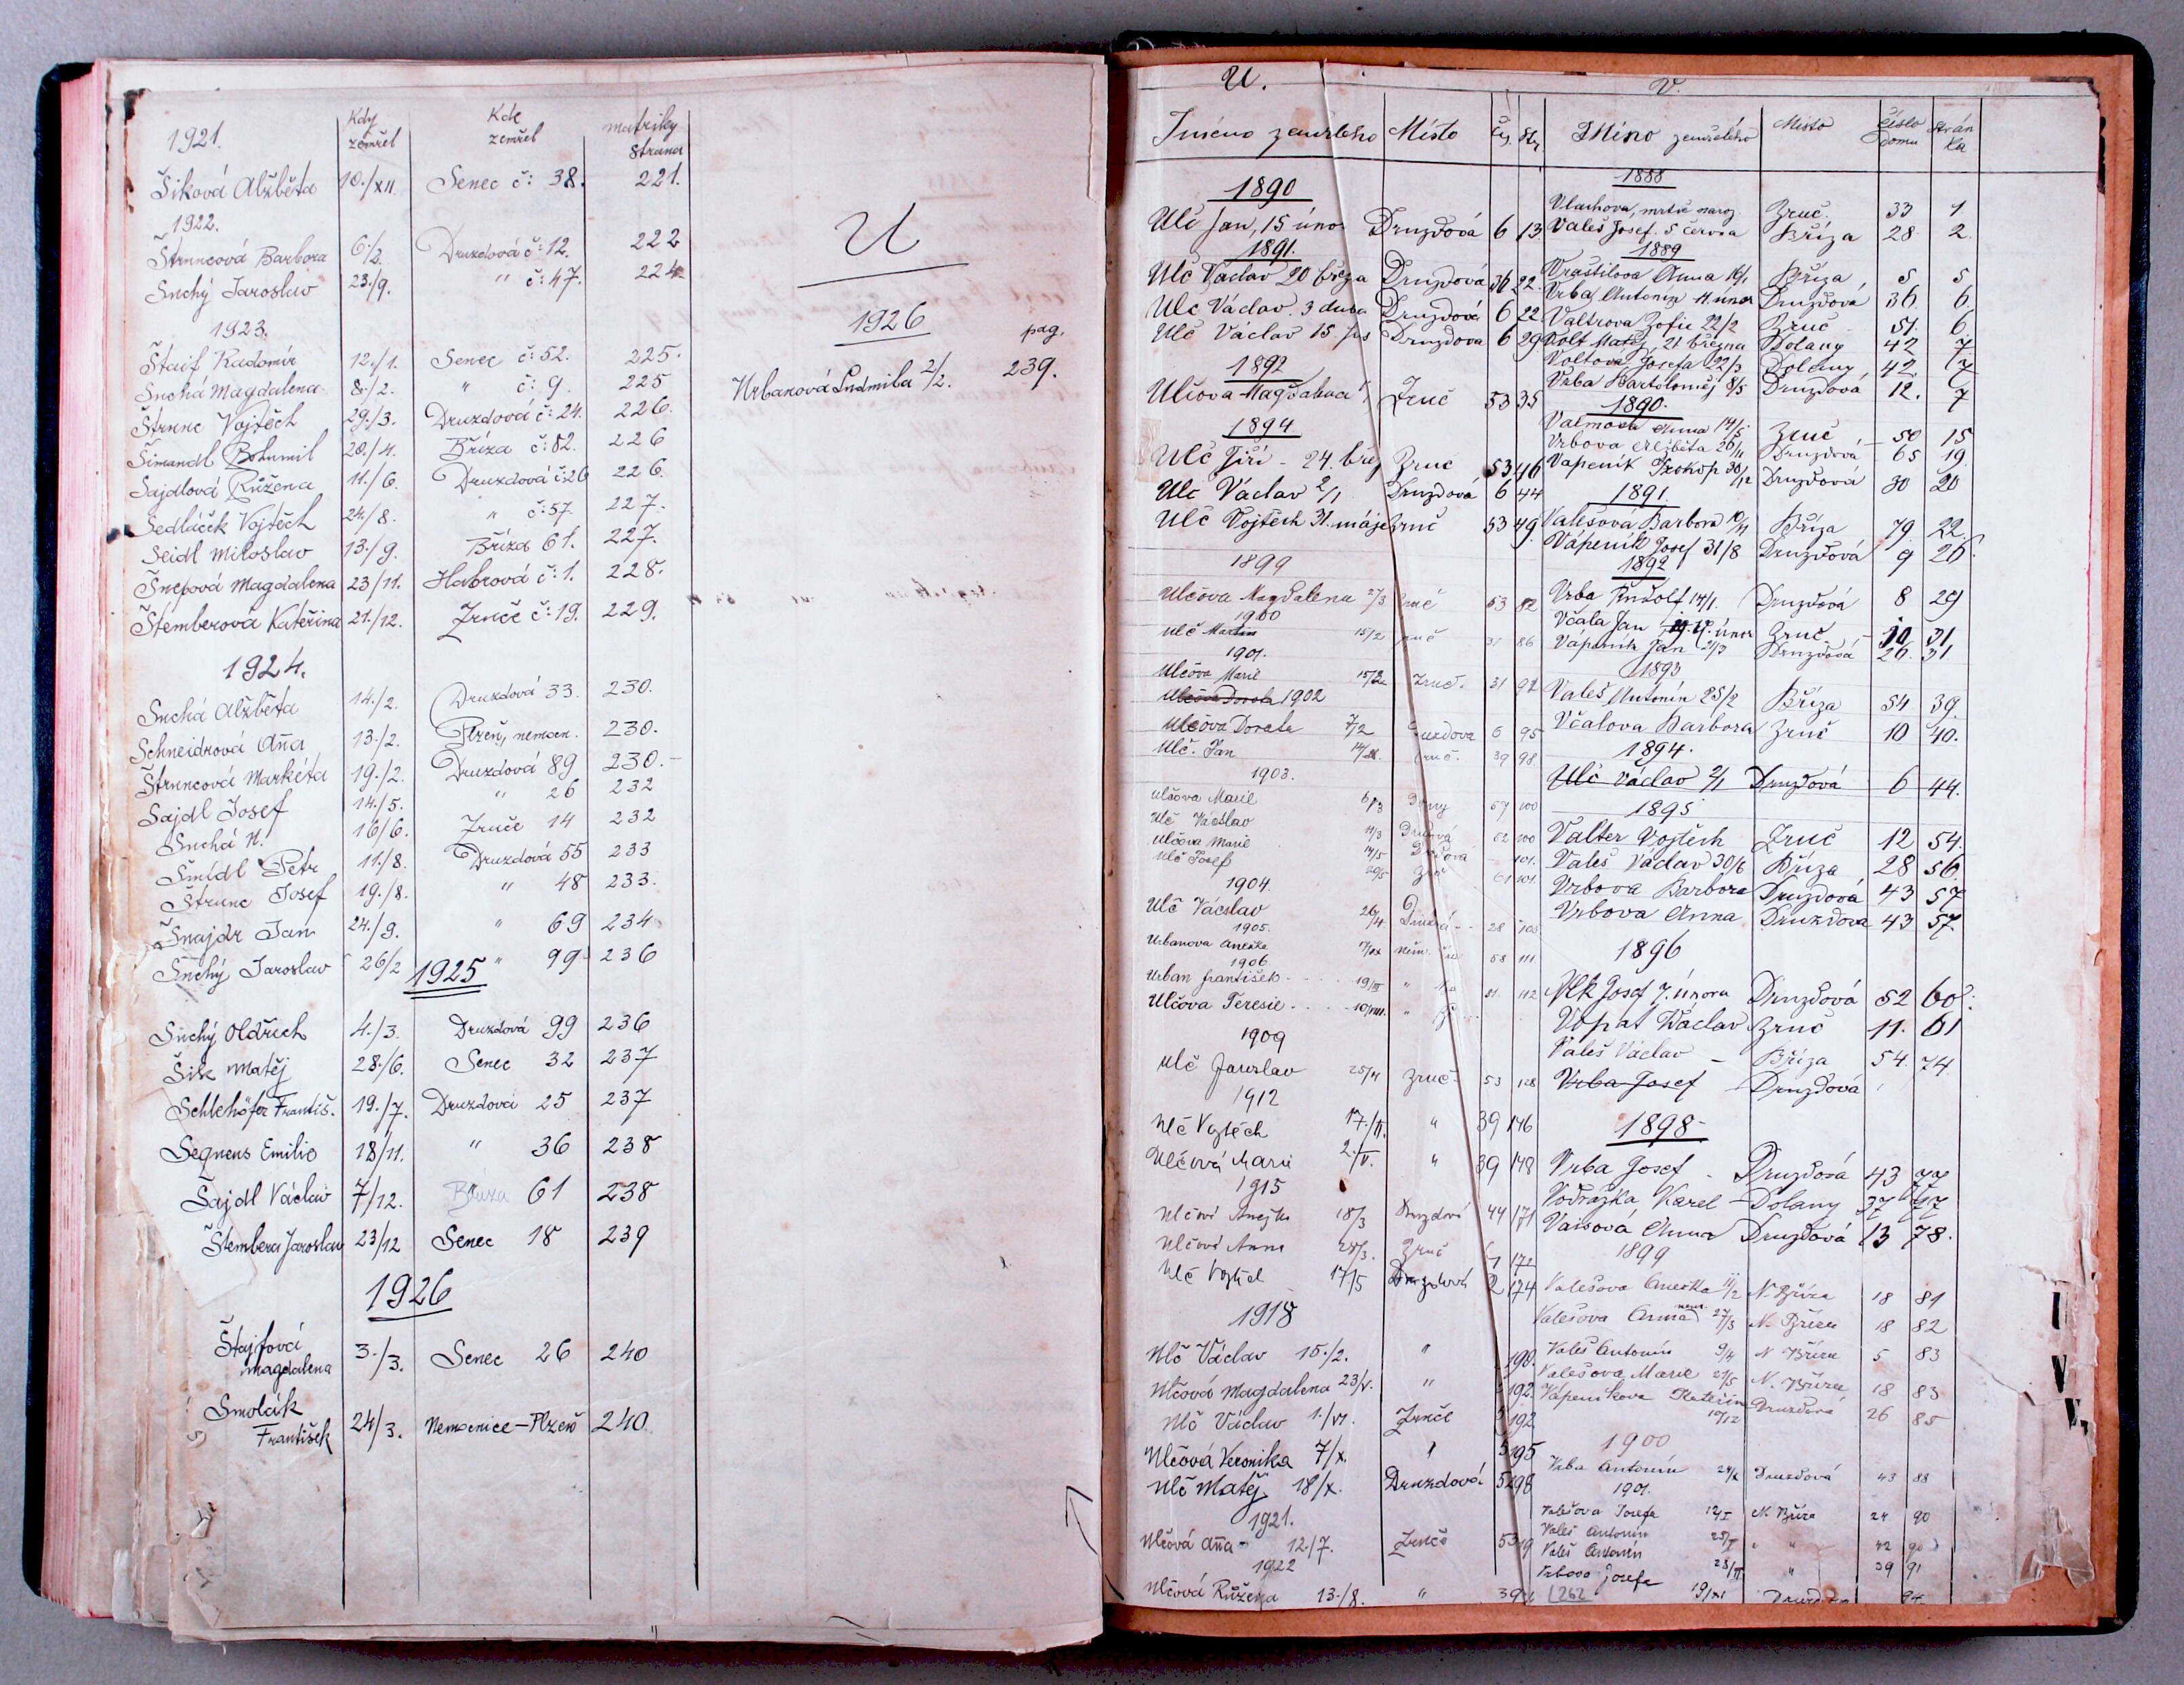 1921.
Kdy zemřel
Kde zemřel
matriky strana
Šiková Alžběta 10./XII Senec č: 38. 221.
1922.
Štruncová Barbora 6./2. Druzdová č: 12. 222
Suchý Jaroslav 23./9. " č: 47. 224
1923.
Štaif Radomír 12./1. Senec č: 52. 225.
Suchá Magdalena 8./2. " č: 9. 225
Štrunc Vojtěch 29./3. Druzdová č: 24. 226.
Šimandl Bohumil 20./4. Bříza č: 82. 226
Šajdlová Růžena 11./6. Druzdová č: 26 226.
Sedláček Vojtěch 24./8. " č: 57. 227.
Seidl Miloslav 13./9. Bříza 61. 227.
Šnepová Magdalena 23/11. Habrová č: 1. 228.
Štemberová Kateřina 21./12. Zruče č: 19. 229.
1924.
Suchá Alžběta 14./2. Druzdová 33. 230.
Schneidrová Aña 13./2. Plzeň, nemocn. 230.
Štruncová Markéta 19./2. Druzdová 89 230.-
Šajdl Josef 14./5. " 26 232
Suchá N. 16/6. Zruče 14 232
Šmídl Petr 11./8. Druzdová 55 233
Štrunc Josef 19./8. " 48 233.
Šnajdr Jan 24./9. " 69 234
Suchý Jaroslav 26/2 " 99 236
1925
Suchý Oldřich 4./3. Druzdová 99 236
Šik Matěj 28./6. Senec 32 237
Schlehöfer Františ. 19./7. Druzdová 25 237
Segnens Emilie 18/11. " 36 238
Šajdl Václav 7/12. Bříza 61 238
Štembera Jaroslav 23/12 Senec 18 239
1926
Štajfová Magdalena 3./3. Senec 26 240
Smolák František 24/3. Nemocnice-Plzeň 240.
U
1926
pag.
Urbanová Ludmila 2/2. 239.
U.
Jméno zemřelého Místo Čís. Str.
1890
Ulč Jan, 15 únor Druzdová 6 13
1891.
Ulč Václav 20 březa Druzdová 36 22.
Ulč Václav. 3 duba Druzdová 6 22
Ulč Václav 15 Druzdova 6 29
1892
Ulčova Magdalena Zruč 53 35
1894
Ulč Jiří - 24. břez Zruč 53 46
Ulč Václav 2/1 Druzdová 6 44
Ulč Vojtěch 31. máje Zruč 53 49.
1899
Ulčova Magdalena 2/3 Zruč 53 82
1900
Ulč Martin 15/2 Zruč 31 86
1901.
Ulčova Marie 15/2 Zruč. 31 92
Ulčova Dorota 1902
Ulčova Dorota 7/2 Druzdova 6 95
Ulč. Jan Zruč. 39 98
1903.
Ulčova Marie 6/3 57 100
Ulč Václav 11/3 62 100
Ulčova Marie 14/5 101.
Ulč Josef 20/5 61 101.
1904.
Ulč Václav 26/4 28 105
1905.
Urbanova Anežka 58 111.
1906
Urban František 19/III 51. 112
Ulčova Teresie 10/VIII.
1909
Ulč Jaroslav 25/4 Zruč 53 128
1912
Ulč Vojtěch 17./II. " 39 146
Ulčová Marie 2./V. " 39 148
1915
Ulčová Anežka 18/3 Druzdová 44 171
Ulčová Anna 28/3. Zruč 172
Ulč Vojtěch 17/5 Druzdová 2 174
1918
Ulč Václav 15./2. " 190.
Ulčová Magdalena 23/V. " 192.
Ulč Václav 1./VI. Zruče 192
Ulčová Veronika 7/X. 195
Ulč Matěj 18/X. Druzdová 5 198
1921.
Ulčová Aña 12./7. Zruče 53 19
1922
Ulčová Růžena 13./8. " 39
V.
Jméno zemřelého Místo Číslo domu Stránka
1888
Vlachova, mrtvě naroz. Zruč. 33 1
Valeš Josef. 5 června Bříza 28 2.
1889
Vraštilova Anna Bříza, 5 5
Vrba Antonín 11 únor Druzdová 36 6.
Valtrova Žofie 22/2 Zruč 51. 6.
Volt Matěj, 21 března Dolany 42 7
Voltova Josefa 22/3 Dolany 42. 7
Vrba Bartoloměj 8/5 Druzdová 12. 7
1890.
Valmova Anna 14/5. Zruč 50 15
Vrbova Alžběta 26/11 Druzdová 65 19.
Vapeník Prokop 30/12 Druzdová 30 20
1891.
Valešová Barbora 10/11 Bříza 79. 22.
Vápeník Josef 31/8 Druzdová 9 26.
1892
Vrba Rudolf 14/1. Druzdová 8 29
Včala Jan 17. únor Zruč 10 31
Vápeník Jan 21/3 Druzdová 26. 31
1893
Valeš Antonín 25/2 Bříza 54 39.
Včalova Barbora Zruč 10 40.
1894.
Ulč Václav 2/1 Druzdová 6 44.
1895
Valter Vojtěch Zruč 12 54.
Valeš Václav 30/6 Bříza 28 56.
Vrbova Barbora Druzdová 43 57
Vrbova Anna Druzdova 43 57.
1896
Vlk Josef 7. února Druzdová 52 60.
Vopat Václav Zruč 11. 61
Valeš Václav - Bříza 54. 74.
Vrba Josef - Druzdová
1898
Vrba Josef - Druzdová 43 77
Vodrážka Karel - Dolany 37 77
Vaisová Anna Druzdová 13 78.
1899
Valešova Anežka 11/2 N. Bříza 18 81
Valešova Anna 27/3 N. Bříza 18 82
Valeš Antonín 9/4 N Bříza 5 83
Valešova Marie 27/5 N. Bříza 18 83
Vápenikova Kateřina 10/12 Druzdová 26 85
1900
Vrba Antonín Druzdová 43 88
1901.
Valešova Josefa N. Bříza 24 90
Valeš Antonín 25/I " " 42 90
Valeš Antonín 28/II " 39 91
Vrbova Josefa 19/XI 94.
262
U
V